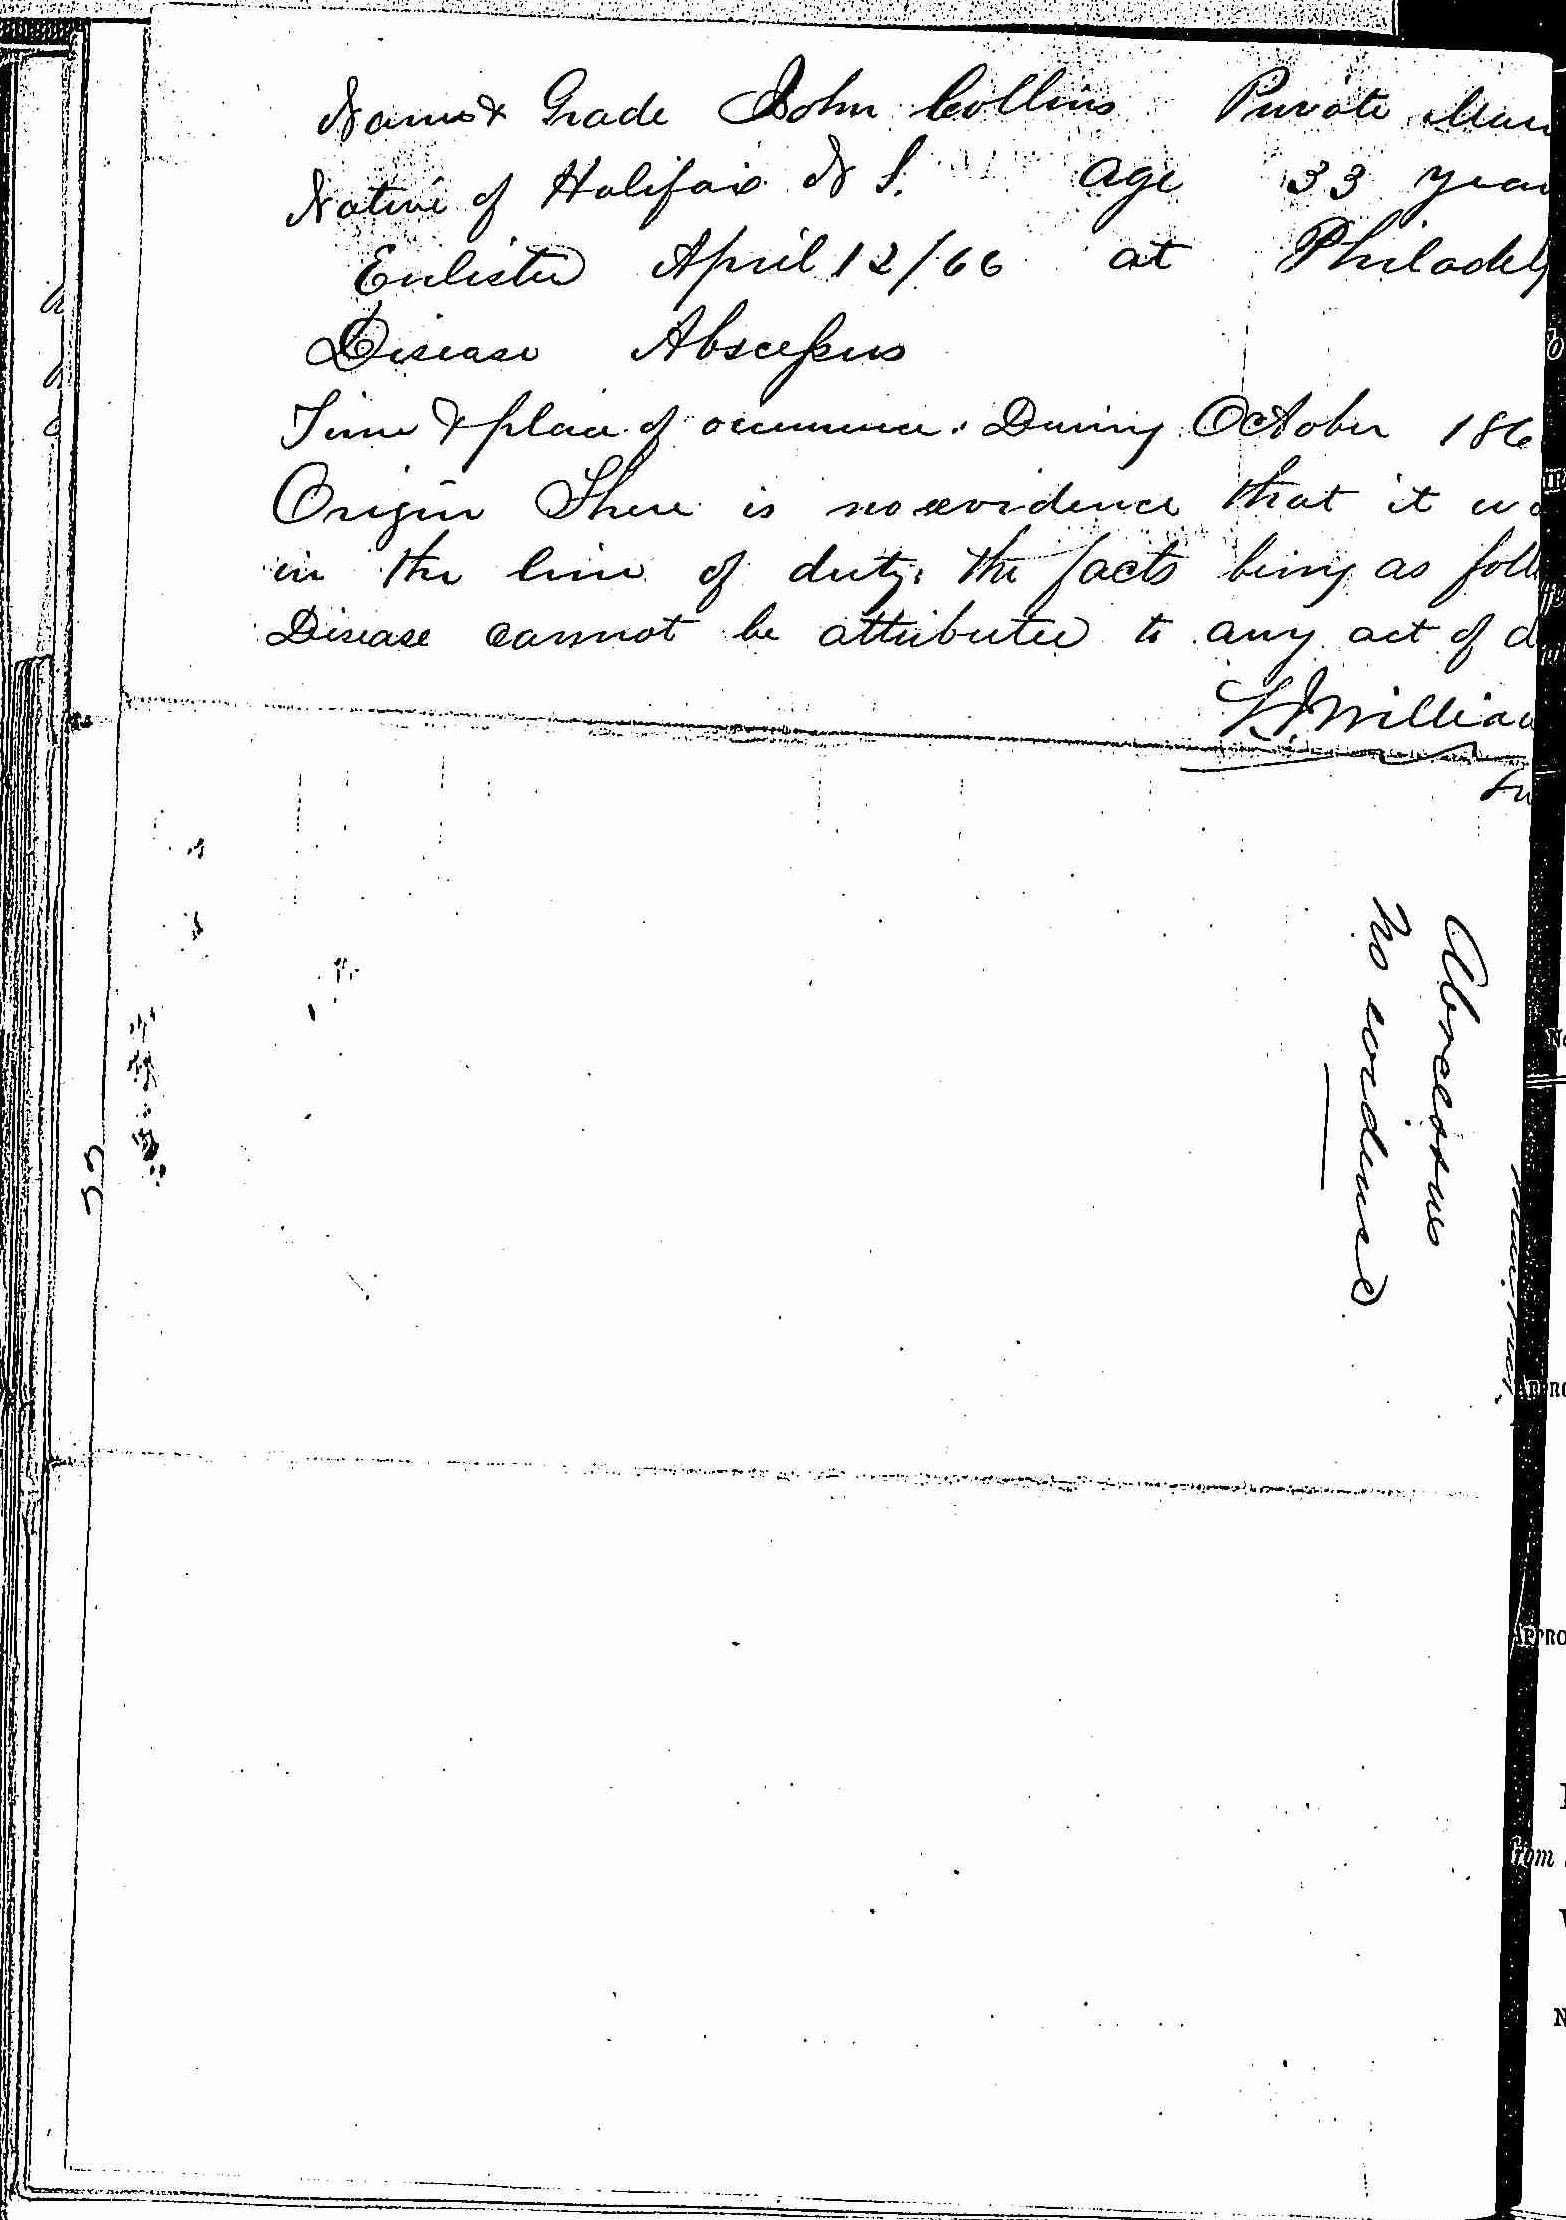 Name & Grade John Collins Private Mari
Native of Halifax N S. age 33 year
Enlisted April 12/66 at Philadelp
Disease Abscessus
Time & place of occurrence: During October 186
Origin There is no evidence that it wa
in the line of duty, the facts being as foll
Disease cannot be attributed to any act of d
Willia
Su
Abscessus
No evidence